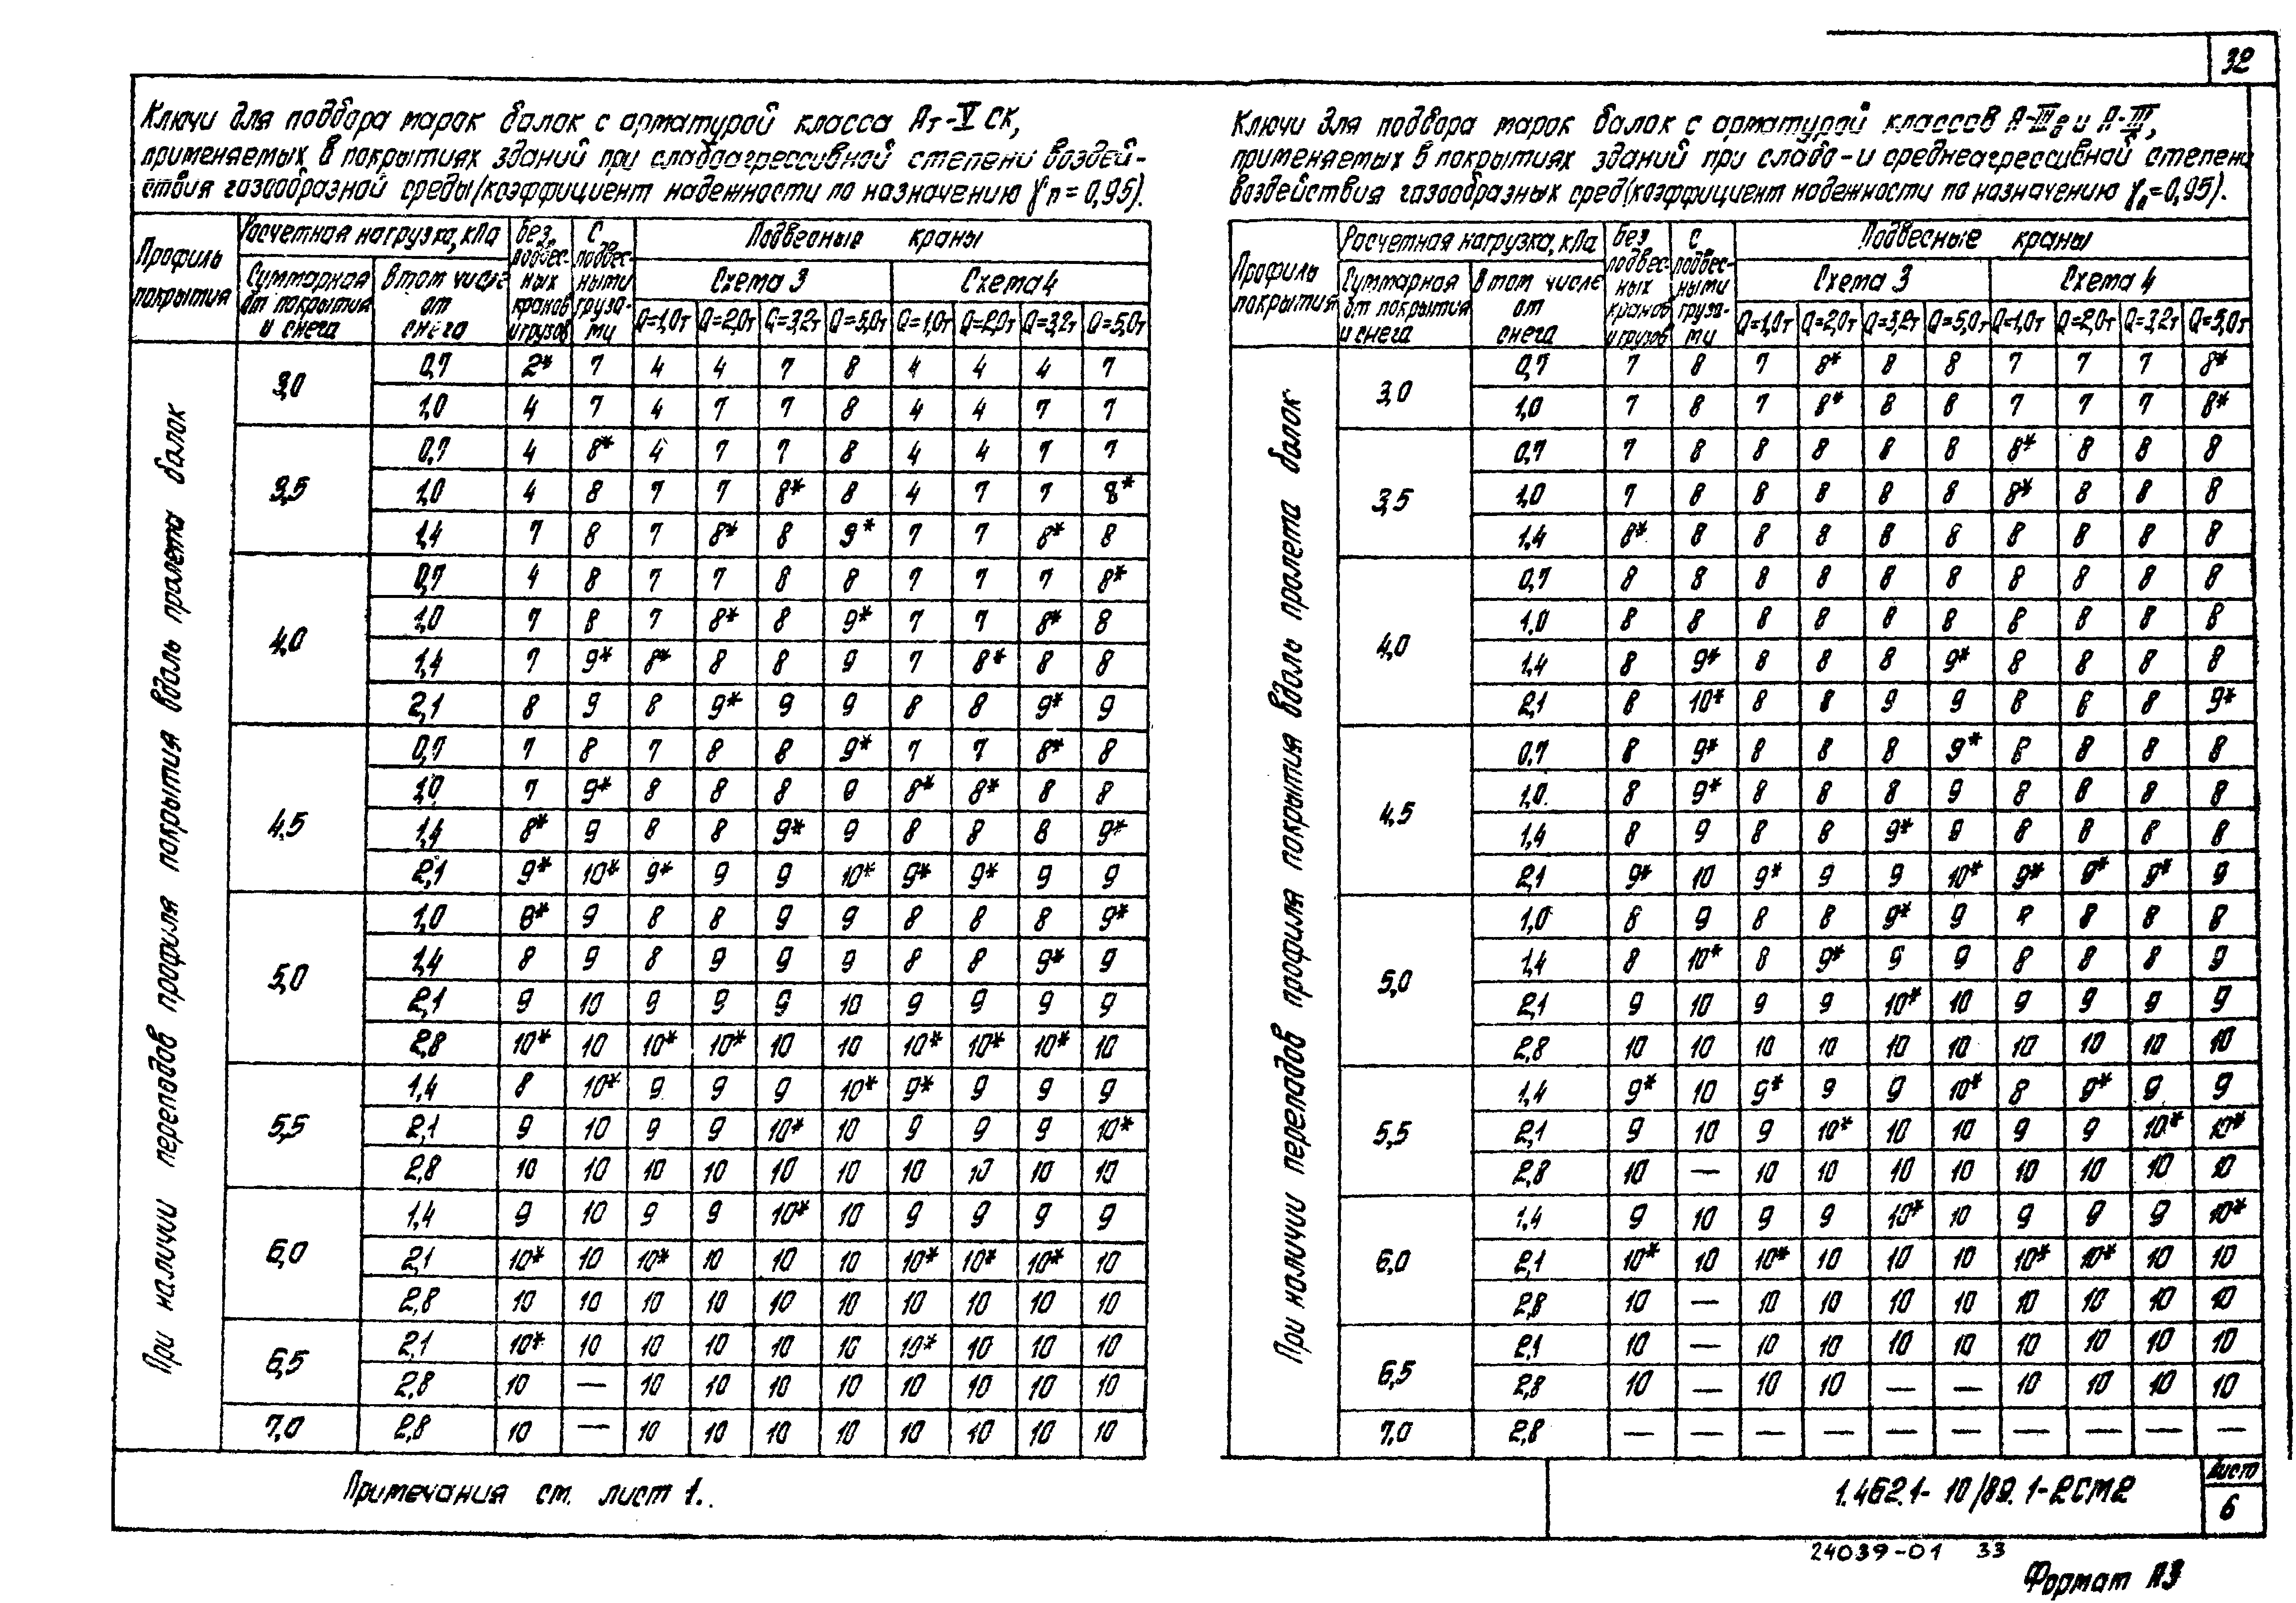 32
Ключи для подбора марок балок с арматурой класса Ат-V СК,
применяемых в покрытиях зданий при слабоагрессивной степени воздей-
ствия газообразной среды (коэффициент надежности по назначению γn = 0,95).
Профиль покрытия | Расчетная нагрузка, кПа | Без подвес-ных кранов и грузов | С подвес-ными груза-ми | Подвесные краны
Суммарная от покрытия и снега | В том числе от снега | Схема 3 | Схема 4
Q=1,0т Q=2,0т Q=3,2т Q=5,0т Q=1,0т Q=2,0т Q=3,2т Q=5,0т
При наличии перепадов профиля покрытия вдоль пролета балок
3,0 0,7 2* 7 4 4 7 8 4 4 4 7
1,0 4 7 4 7 7 8 4 4 7 7
3,5 0,7 4 8* 4 7 7 8 4 4 7 7
1,0 4 8 7 7 8* 8 4 7 7 8*
1,4 7 8 7 8* 8 9* 7 7 8* 8
4,0 0,7 4 8 7 7 8 8 7 7 7 8*
1,0 7 8 7 8* 8 9* 7 7 8* 8
1,4 7 9* 8* 8 8 9 7 8* 8 8
2,1 8 9 8 9* 9 9 8 8 9* 9
4,5 0,7 7 8 7 8 8 9* 7 7 8* 8
1,0 7 9* 8 8 8 9 8* 8* 8 8
1,4 8* 9 8 8 9* 9 8 8 8 9*
2,1 9* 10* 9* 9 9 10* 9* 9* 9 9
5,0 1,0 8* 9 8 8 9 9 8 8 8 9*
1,4 8 9 8 9 9 9 8 8 9* 9
2,1 9 10 9 9 9 10 9 9 9 9
2,8 10* 10 10* 10* 10 10 10* 10* 10* 10
5,5 1,4 8 10* 9 9 9 10* 9* 9 9 9
2,1 9 10 9 9 10* 10 9 9 9 10*
2,8 10 10 10 10 10 10 10 10 10 10
6,0 1,4 9 10 9 9 10* 10 9 9 9 9
2,1 10* 10 10* 10 10 10 10* 10* 10* 10
2,8 10 10 10 10 10 10 10 10 10 10
6,5 2,1 10* 10 10 10 10 10 10* 10 10 10
2,8 10 — 10 10 10 10 10 10 10 10
7,0 2,8 10 — 10 10 10 10 10 10 10 10
Примечания см. лист 1.
Ключи для подбора марок балок с арматурой классов А-IIIв и А-III,
применяемых в покрытиях зданий при слабо- и среднеагрессивной степени
воздействия газообразных сред (коэффициент надежности по назначению γn=0,95).
Профиль покрытия | Расчетная нагрузка, кПа | Без подвес-ных кранов и грузов | С подвес-ными груза-ми | Подвесные краны
Суммарная от покрытия и снега | В том числе от снега | Схема 3 | Схема 4
Q=1,0т Q=2,0т Q=3,2т Q=5,0т Q=1,0т Q=2,0т Q=3,2т Q=5,0т
При наличии перепадов профиля покрытия вдоль пролета балок
3,0 0,7 7 8 7 8* 8 8 7 7 7 8*
1,0 7 8 7 8* 8 8 7 7 7 8*
3,5 0,7 7 8 8 8 8 8 8* 8 8 8
1,0 7 8 8 8 8 8 8* 8 8 8
1,4 8* 8 8 8 8 8 8 8 8 8
4,0 0,7 8 8 8 8 8 8 8 8 8 8
1,0 8 8 8 8 8 8 8 8 8 8
1,4 8 9* 8 8 8 9* 8 8 8 8
2,1 8 10* 8 8 9 9 8 8 8 9*
4,5 0,7 8 9* 8 8 8 9* 8 8 8 8
1,0 8 9* 8 8 8 9 8 8 8 8
1,4 8 9 8 8 9* 9 8 8 8 8
2,1 9* 10 9* 9 9 10* 9* 9* 9* 9
5,0 1,0 8 9 8 8 9* 9 8 8 8 8
1,4 8 10* 8 9* 9 9 8 8 8 9
2,1 9 10 9 9 10* 10 9 9 9 9
2,8 10 10 10 10 10 10 10 10 10 10
5,5 1,4 9* 10 9* 9 9 10* 8 9* 9 9
2,1 9 10 9 10* 10 10 9 9 10* 10*
2,8 10 — 10 10 10 10 10 10 10 10
6,0 1,4 9 10 9 9 10* 10 9 9 9 10*
2,1 10* 10 10* 10 10 10 10* 10* 10 10
2,8 10 — 10 10 10 10 10 10 10 10
6,5 2,1 10 — 10 10 10 10 10 10 10 10
2,8 10 — 10 10 — — 10 10 10 10
7,0 2,8 — — — — — — — — — —
1.462.1-10/89.1-2СМ2
Лист
6
24039-01 33
Формат А3